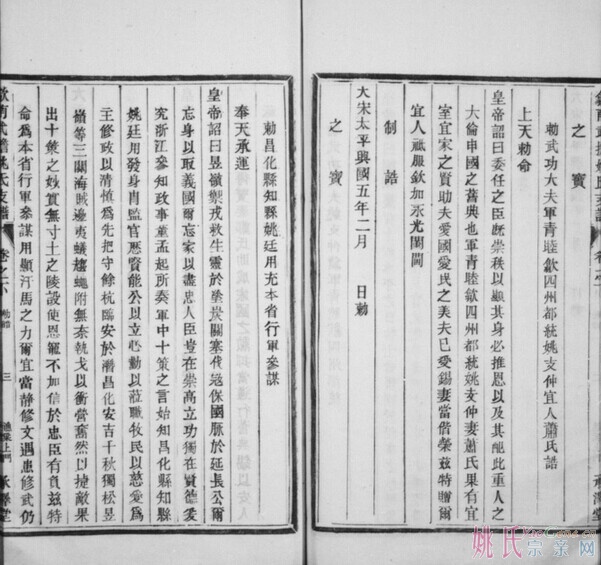 之寶
勅武功大夫軍青睦歙四州都統姚支仲宜人蕭氏誥
上天勅命
皇帝詔曰委任之臣旣崇秩以顯其身必推恩以及其配此重人之
大倫申國之舊典也軍青睦歙四州都統姚支仲妻蕭氏果有宜
室宜家之賢助夫愛國愛民之美夫已愛錫妻當偕榮茲特贈爾
宜人祗服欽加永光閨閫
制誥
大宋太平興國五年二月 日勅
之寶
勅昌化縣知縣姚廷用充本省行軍參謀
奉天承運
皇帝詔曰旻嶺禦戎救生靈於塗炭關塞伐
保國脈於延長公爾
忘身以取義國爾忘家以盡忠人臣豈在崇高立功獨在賢德爰
究浙江參知政事董孟起所奏軍中十策之言始知昌化縣知縣
姚廷用發身肖監官應賢能公以立心勤以蒞職牧民以慈愛爲
主修政以清慎爲先把守餘杭臨安於潛昌化安吉千秋獨松昱
嶺等三關海賊邊夷蟻
蠅附無奈執戈以衝營奮然以摧敵果
出十策之妙實無寸土之陵設使恩寵不加信於忠臣有負茲特
命爲本省行軍參謀用顯汗馬之力爾宜當靜修文遇患修武仍
歙南武擔姚氏支譜
卷之八
勅誥
三
承澤堂
姚氏宗亲网